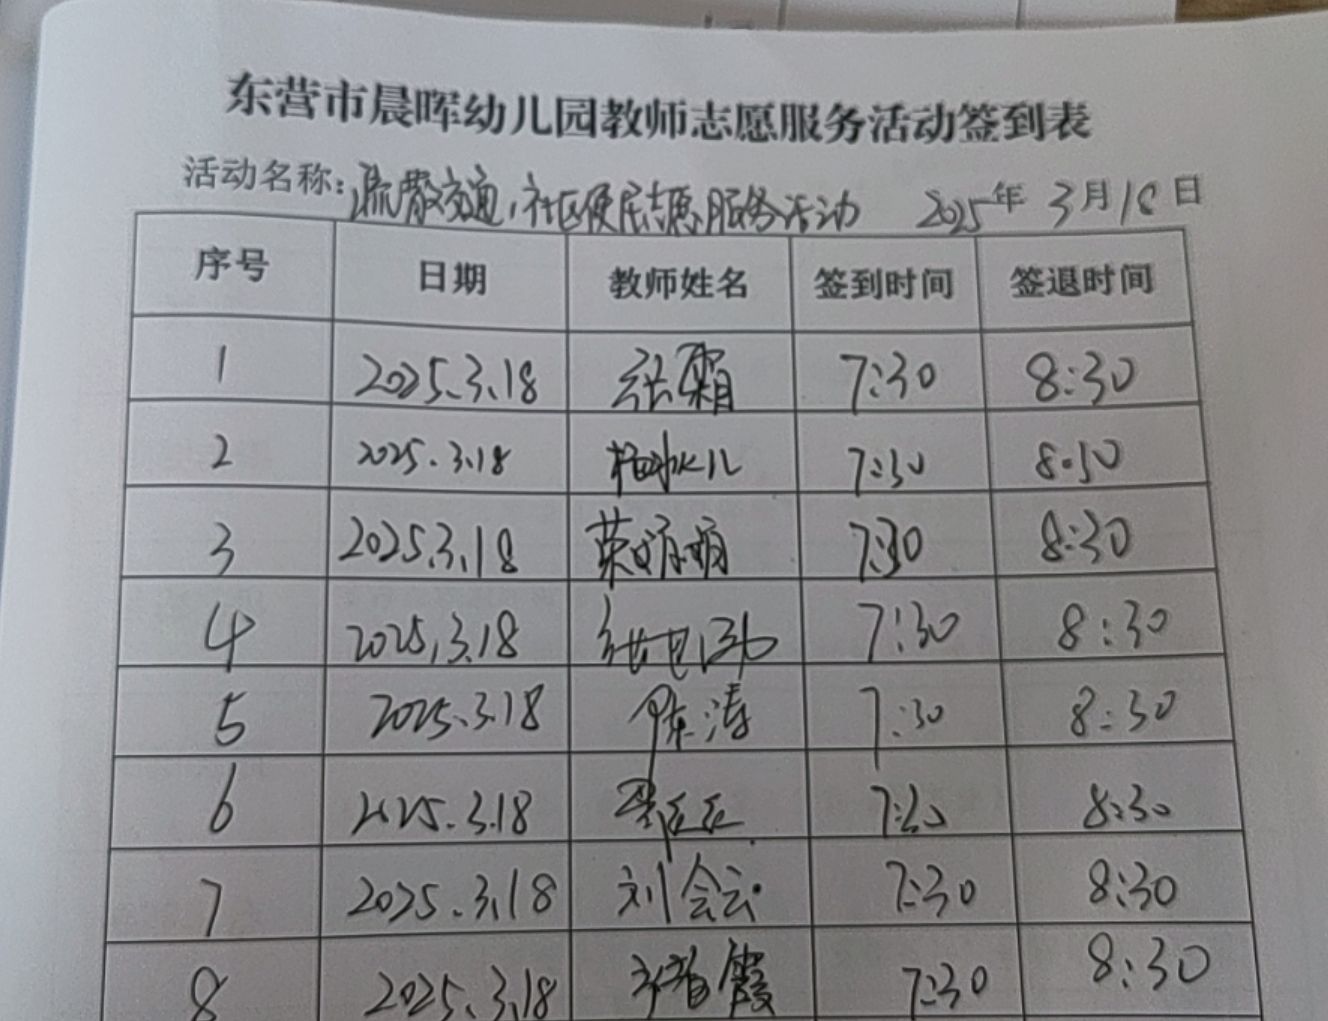 东营市晨晖幼儿园教师志愿服务活动签到表
活动名称:疏散交通,社区便民志愿服务活动 2025年3月18日
序号 日期 教师姓名 签到时间 签退时间
1 2025.3.18 张霜 7:30 8:30
2 2025.3.18 7:30 8:30
3 2025.3.18 7:30 8:30
4 2025.3.18 7:30 8:30
5 2025.3.18 陈涛 7:30 8:30
6 2025.3.18 7:30 8:30
7 2025.3.18 刘会云 7:30 8:30
8 2025.3.18 7:30 8:30